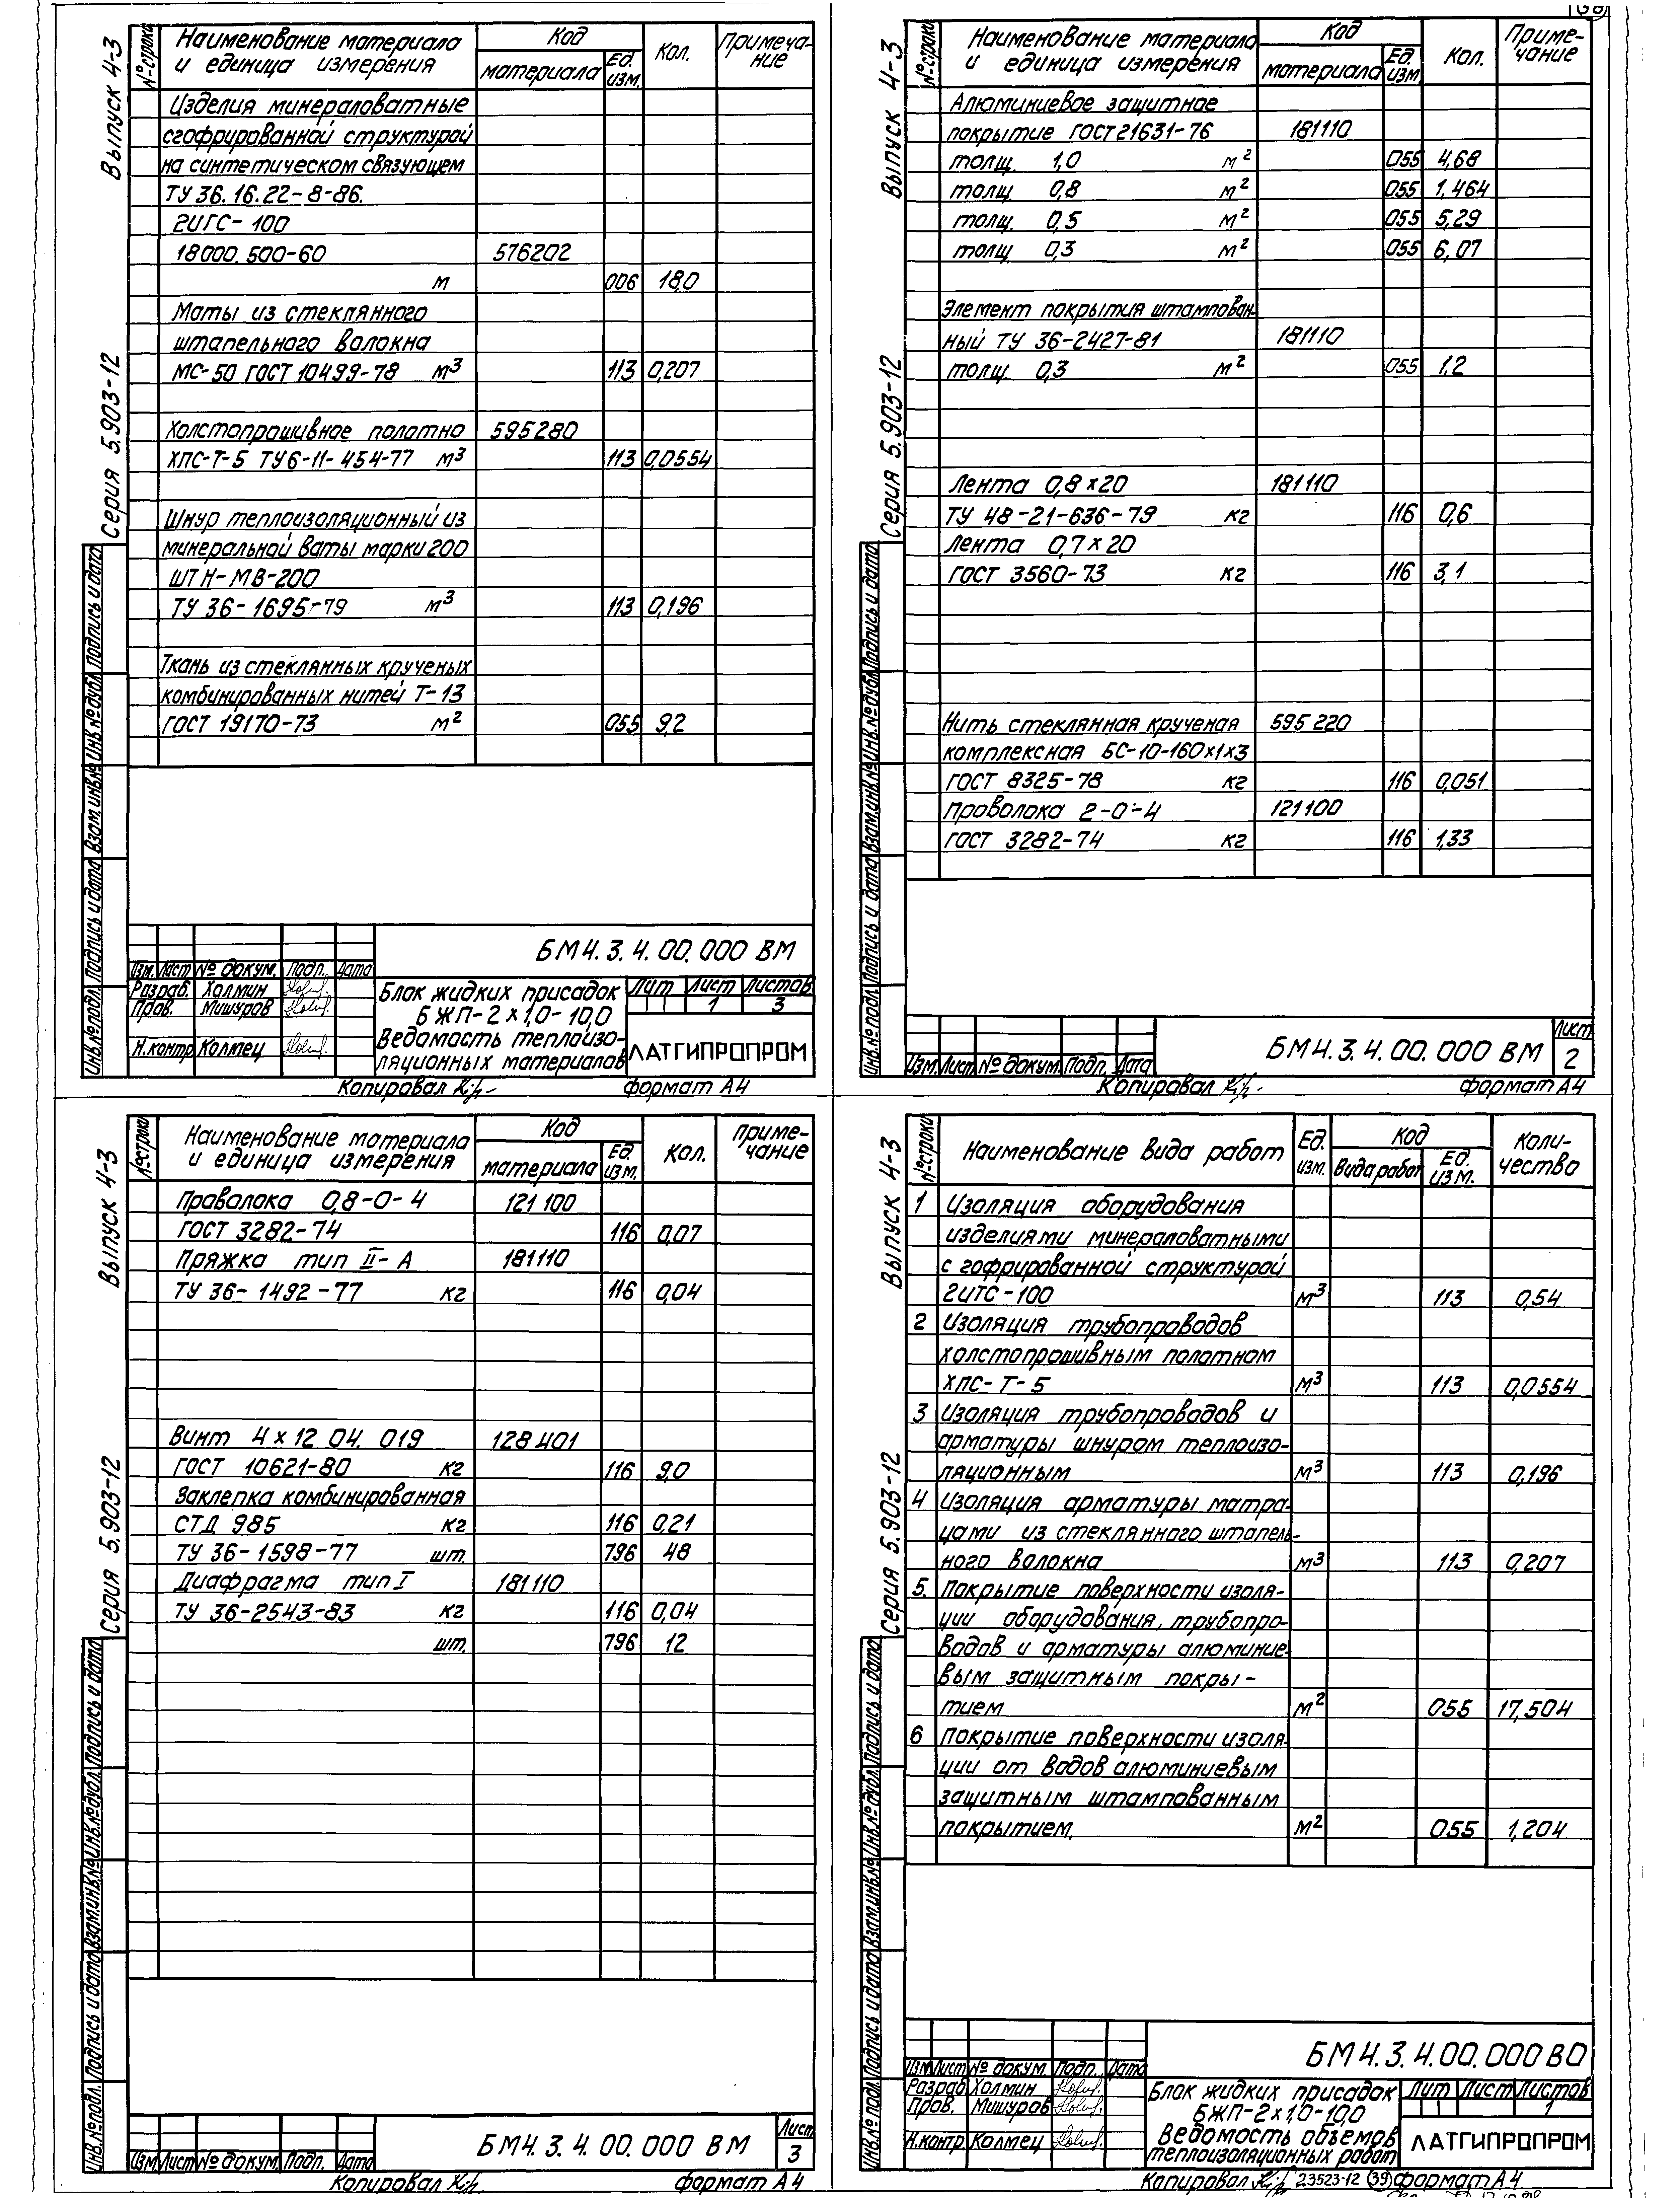 Выпуск 4-3
Серия 5.903-12
№ строки
Наименование материала и единица измерения
Код
материала
Ед. изм.
Кол.
Примеча-
ние
Изделия минераловатные
сгофрированной структурой
на синтетическом связующем
ТУ 36.16.22-8-86.
2ИГС-100
18000.500-60 576202
м 006 18,0
Маты из стеклянного
штапельного волокна
МС-50 ГОСТ 10499-78 м³ 113 0,207
Холстопрошивное полотно 595280
ХПС-Т-5 ТУ6-11-454-77 м³ 113 0,0554
Шнур теплоизоляционный из
минеральной ваты марки 200
ШТН-МВ-200
ТУ 36-1695-79 м³ 113 0,196
Ткань из стеклянных крученых
комбинированных нитей Т-13
ГОСТ 19170-73 м² 055 9,2
Инв.№ подл. Подпись и дата Взам.инв.№ Инв.№ дубл. Подпись и дата
БМ4.3.4.00.000 ВМ
Изм. Лист № докум. Подп. Дата
Разраб. Холмин
Пров. Мишуров
Н.контр Колтец
Блок жидких присадок
БЖП-2х1,0-10,0
Ведомость теплоизо-
ляционных материалов
Лит. Лист Листов
1 3
ЛАТГИПРОПРОМ
Копировал формат А4
Выпуск 4-3
Серия 5.903-12
№ строки
Наименование материала
и единица измерения
Код
материала
Ед. изм
Кол.
Приме-
чание
Алюминиевое защитное
покрытие ГОСТ21631-76 181110
толщ. 1,0 м² 055 4,68
толщ. 0,8 м² 055 1,464
толщ. 0,5 м² 055 5,29
толщ 0,3 м² 055 6,07
Элемент покрытия штампован-
ный ТУ 36-2427-81 181110
толщ. 0,3 м² 055 1,2
Лента 0,8×20 181110
ТУ 48-21-636-79 кг 116 0,6
Лента 0,7×20
ГОСТ 3560-73 кг 116 3,1
Нить стеклянная крученая 595220
комплексная БС-10-160х1х3
ГОСТ 8325-78 кг 116 0,051
Проволока 2-0-4 121100
ГОСТ 3282-74 кг 116 1,33
Инв.№ подл. Подпись и дата Взам.инв.№ Инв.№ дубл. Подпись и дата
Изм. Лист № докум. Подп. Дата
БМ4.3.4.00.000 ВМ
Лист
2
Копировал формат А4
Выпуск 4-3
Серия 5.903-12
№ строки
Наименование материала
и единица измерения
Код
материала
Ед. изм.
Кол.
Приме-
чание
Проволока 0,8-0-4 121100
ГОСТ 3282-74 116 0,07
Пряжка тип II-А 181110
ТУ 36-1492-77 кг 116 0,04
Винт 4×12 04. 019 128401
ГОСТ 10621-80 кг 116 9,0
Заклепка комбинированная
СТД 985 кг 116 0,21
ТУ 36-1598-77 шт. 796 48
Диафрагма тип I 181110
ТУ 36-2543-83 кг 116 0,04
шт. 796 12
Инв.№ подл. Подпись и дата Взам.инв.№ Инв.№ дубл. Подпись и дата
Изм. Лист № докум. Подп. Дата
БМ4.3.4.00.000 ВМ
Лист
3
Копировал формат А4
Выпуск 4-3
Серия 5.903-12
№ строки
Наименование вида работ
Ед. изм.
Код
Вида работ
Ед. изм.
Коли-
чество
1 Изоляция оборудования
изделиями минераловатными
с гофрированной структурой
2ИТС-100 м³ 113 0,54
2 Изоляция трубопроводов
холстопрошивным полотном
ХПС-Т-5 м³ 113 0,0554
3 Изоляция трубопроводов и
арматуры шнуром теплоизо-
ляционным м³ 113 0,196
4 Изоляция арматуры матра-
цами из стеклянного штапель-
ного волокна м³ 113 0,207
5. Покрытие поверхности изоля-
ции оборудования, трубопро-
водов и арматуры алюминие-
вым защитным покры-
тием м² 055 17,504
6 Покрытие поверхности изоля-
ции отводов алюминиевым
защитным штампованным
покрытием. м² 055 1,204
Инв.№ подл. Подпись и дата Взам.инв.№ Инв.№ дубл. Подпись и дата
БМ4.3.4.00.000 ВО
Изм Лист № докум. Подп. Дата
Разраб Холмин
Пров. Мишуров
Н.контр. Колтец
Блок жидких присадок
БЖП-2х1,0-10,0
Ведомость объемов
теплоизоляционных работ
Лит Лист Листов
1
ЛАТГИПРОПРОМ
Копировал 23523-12 (39) формат А4